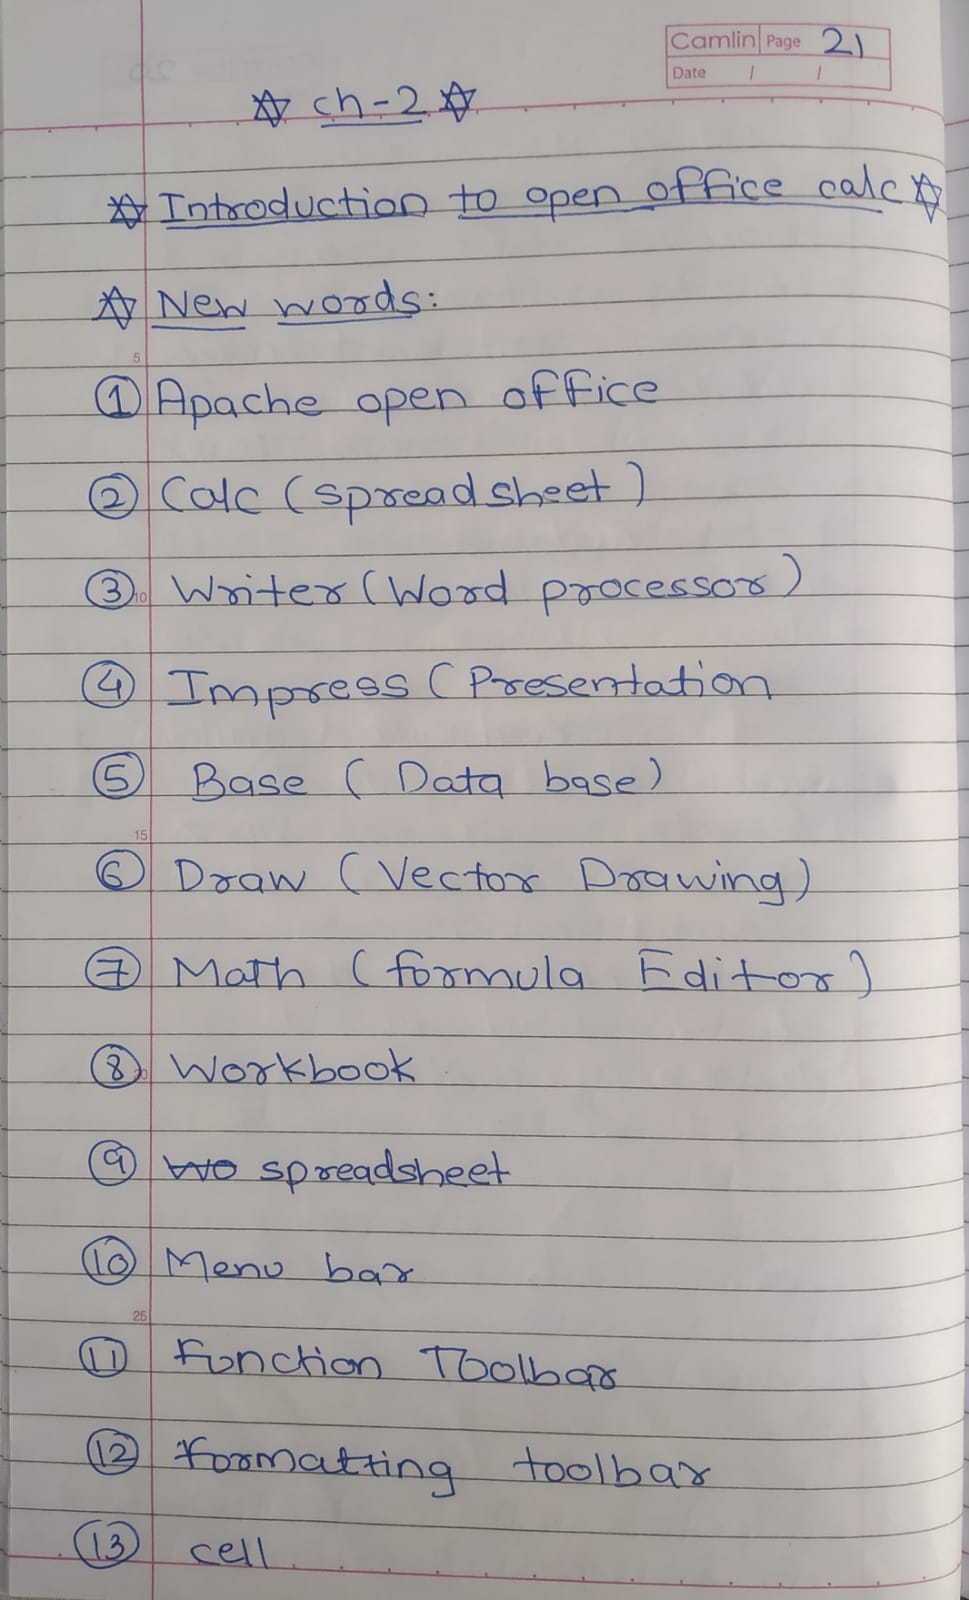 Camlin Page 21
Date / /
☆ ch-2 ☆
☆ Introduction to open office calc ☆
☆ New words:
5
① Apache open office
② Calc (spread sheet)
③ Writer (Word processor)
10
④ Impress (Presentation
⑤ Base ( Data base)
15
⑥ Draw (Vector Drawing)
⑦ Math (formula Editor)
⑧ Workbook
20
⑨ wo spreadsheet
⑩ Menu bar
25
⑪ Function Toolbar
⑫ formatting toolbar
⑬ cell